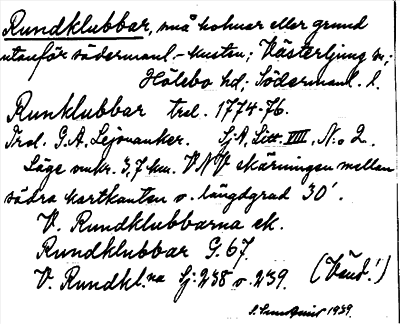 Rundklubbar, små holmar eller grund
utanför södermanl.-kusten; Västerljung sn;
Hölebo hd; Södermanl. l.
Runklubbar trol. 1774-76.
Trol. G.A. Leijonanker. SjA, Litt. VIII, No 2.
Läge omkr. 3,7 km. VNV skärningen mellan
södra kartkanten o. längdgrad 30'.
V. Rundklubbarna ek.
Rundklubbar G. 67.
V. Rundkl.na Sj: 238 o. 239. (Vänd!)
1939.